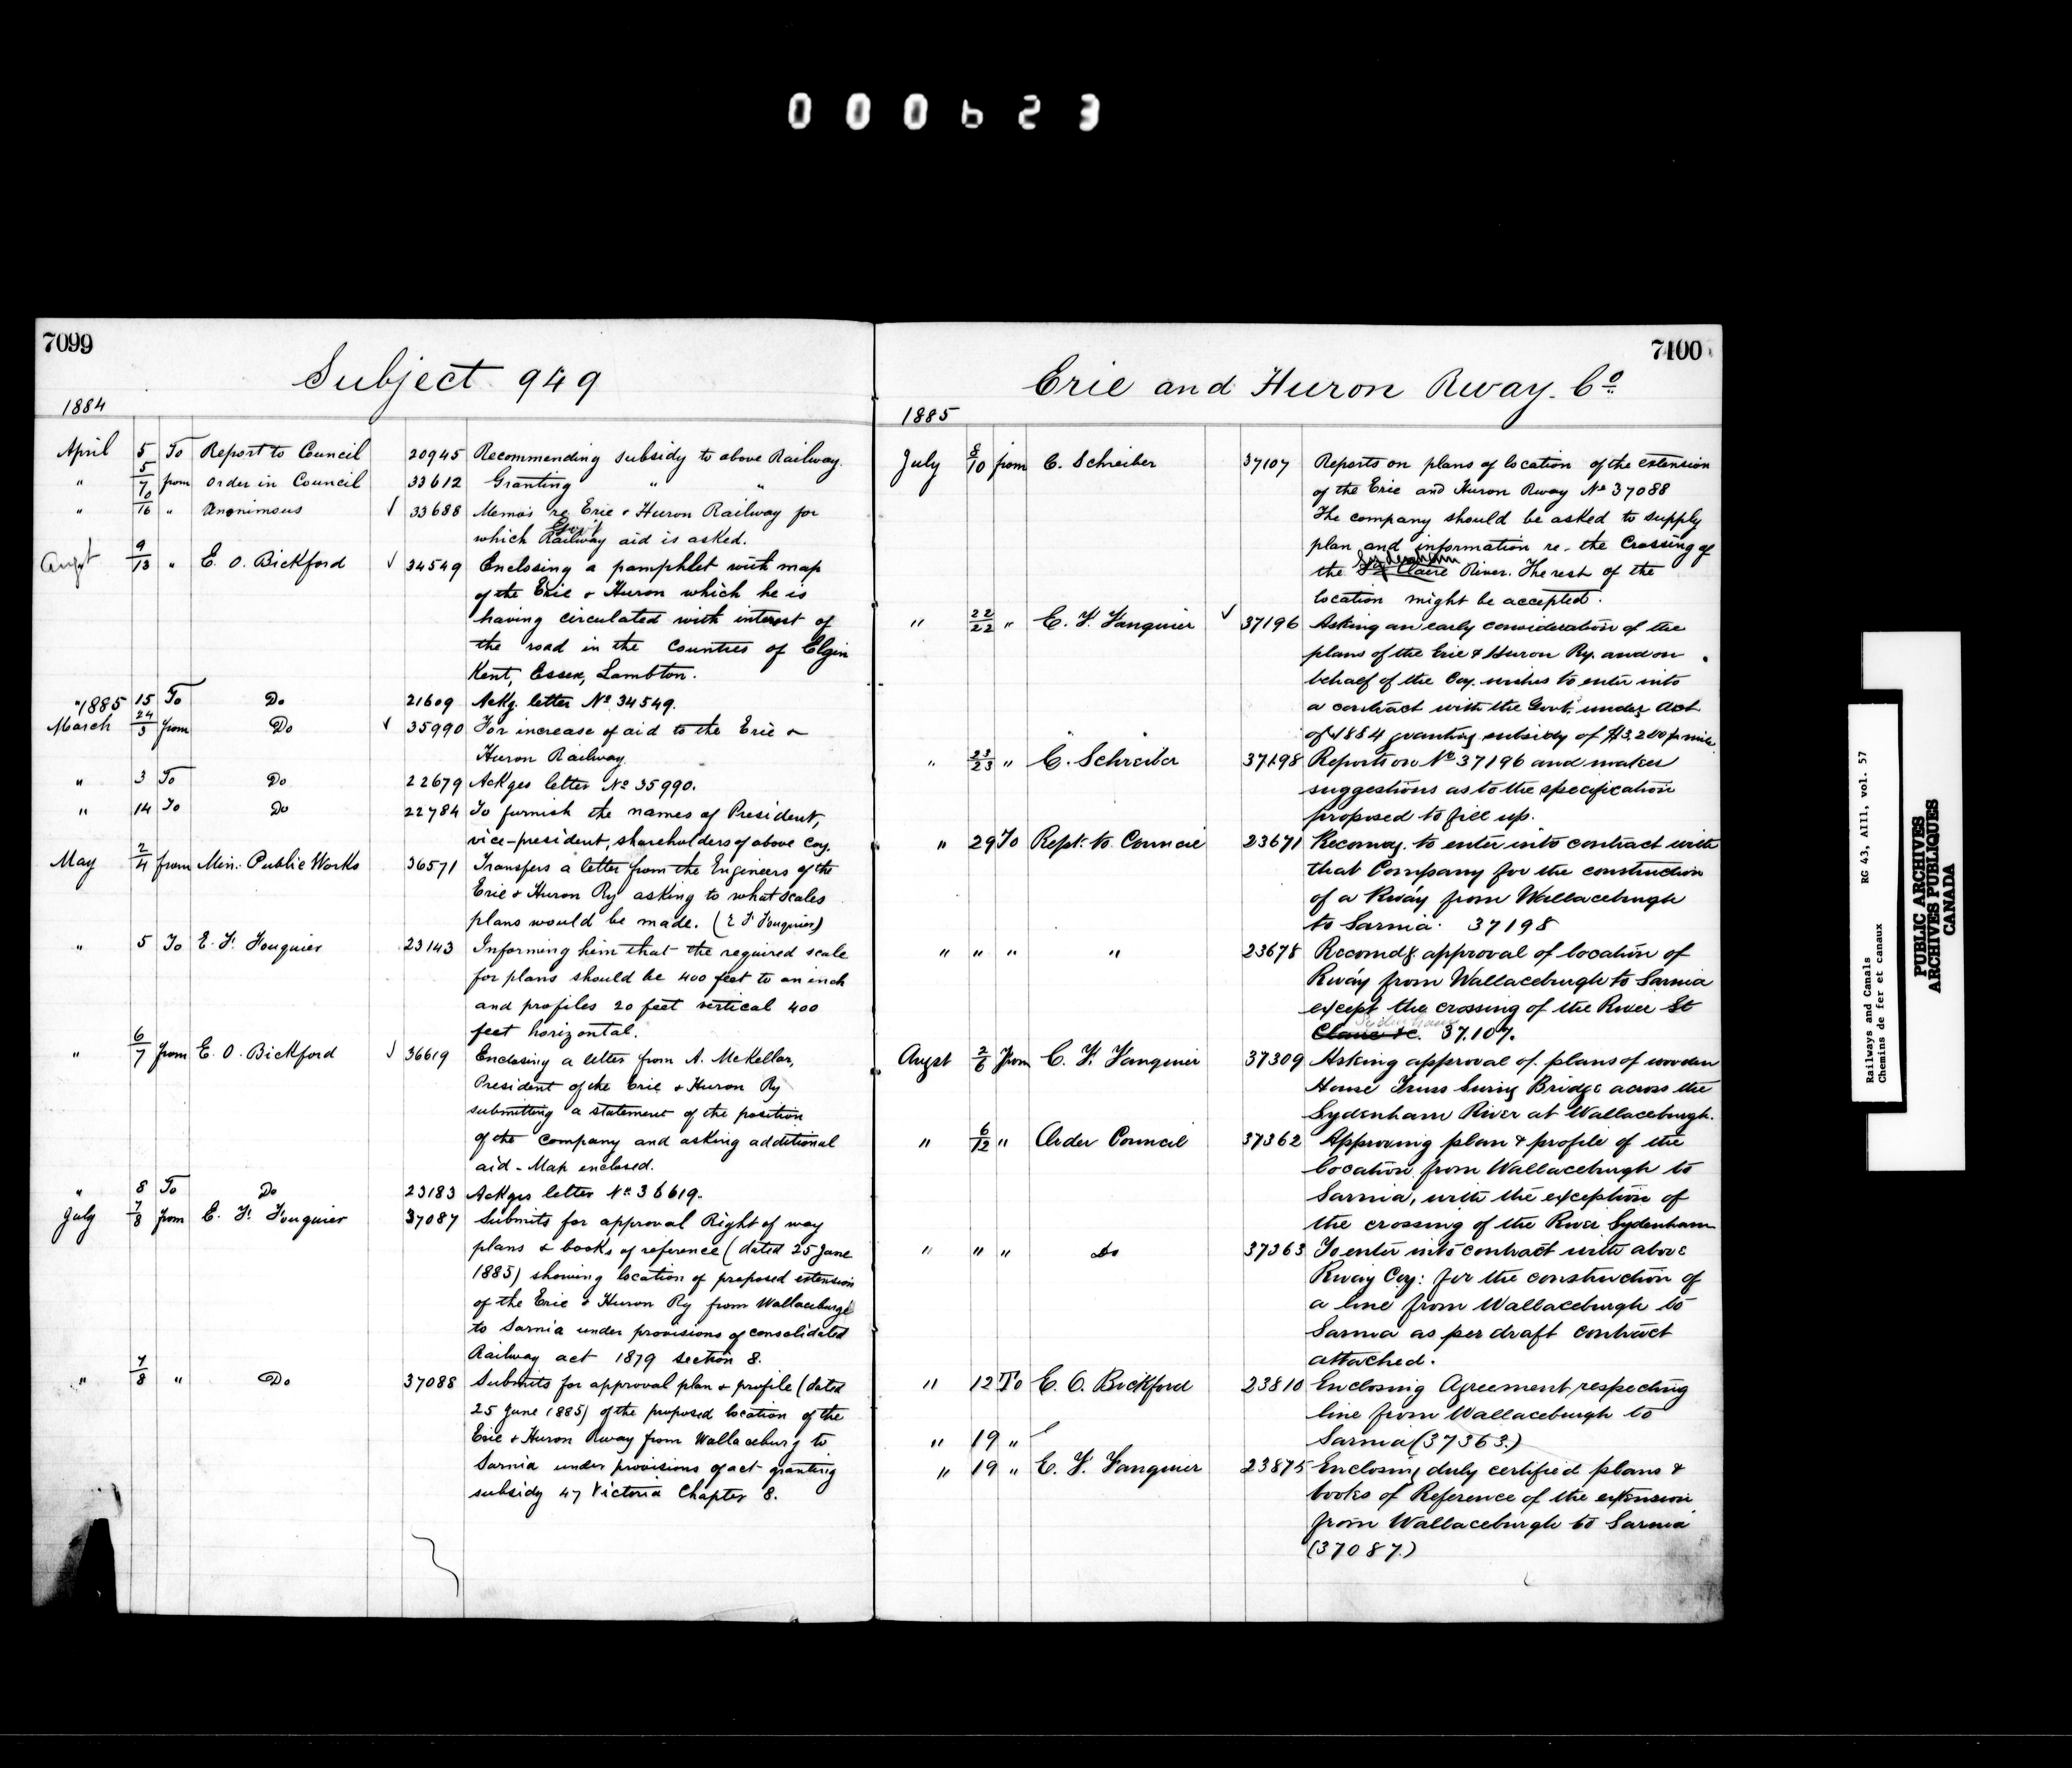 000623
7099
Subject 949
1884
April 5 To Report to Council 20945 Recommending subsidy to above Railway.
" 5/7 from Order in Council 33612 Granting " "
" 10/16 " Anonimous √ 33688 Memo's re Erie & Huron Railway for
which Railway aid is asked.
Augst 9/13 " E. O. Bickford √ 34549 Enclosing a pamphlet with map
of the Erie & Huron which he is
having circulated with interest of
the road in the Counties of Elgin
Kent, Essex, Lambton.
" 15 To Do 21609 Ackg. letter No 34549.
1885
March 24/3 from Do √ 35990 For increase of aid to the Erie &
Huron Railway.
" 3 To Do 22679 Ackges letter No 35990.
" 14 To Do 22784 To furnish the names of President,
vice-president, shareholders of above Coy.
May 2/4 from Min: Public Works 36571 Transfers a letter from the Engineers of the
Erie & Huron Ry asking to what scales
plans would be made. (E F Fouquier)
" 5 To E. F. Fouquier 23143 Informing him that the required scale
for plans should be 400 feet to an inch
and profiles 20 feet vertical 400
feet horizontal.
" 6/7 from E. O. Bickford √ 36619 Enclosing a letter from A. McKellar,
President of the Erie & Huron Ry
submitting a statement of the position
of the Company and asking additional
aid - Map enclosed.
" 8 To Do 23183 Ackges letter No 36619.
July 7/8 from E. F. Fouquier 37087 Submits for approval Right of way
plans & books of reference (dated 25 June
1885) showing location of proposed extension
of the Erie & Huron Ry from Wallaceburge
to Sarnia under provisions of consolidated
Railway act 1879 section 8.
" 7/8 " Do 37088 Submits for approval plan & profile (dated
25 June 1885) of the proposed location of the
Erie & Huron Rway from Wallaceburg to
Sarnia under provisions of act granting
subsidy 47 Victoria Chapter 8.
7100
Erie and Huron Rway. Co
1885
July 8/10 from C. Schreiber 37107 Reports on plans of location of the extension
of the Erie and Huron Rway No 37088
The company should be asked to supply
plan and information re- the Crossing of
Sydenham
the St Claire River. The rest of the
location might be accepted.
" 22/22 " E. F. Fauquier √ 37196 Asking an early consideration of the
plans of the Erie & Huron Ry. and on
behalf of the Coy. wishes to enter into
a contract with the Govt. under Act
of 1884 granting subsidy of $3,200 p mile.
" 23/23 " C. Schreiber 37198 Reports on No 37196 and makes
suggestions as to the specification
proposed to fill up.
" 29 To Rept. to Council 23671 Recomdg. to enter into contract with
that Company for the construction
of a Rway from Wallaceburgh
to Sarnia. 37198
" " " " 23678 Recomdg approval of location of
Rway from Wallaceburgh to Sarnia
except the crossing of the River St
Sydenham
Claire &c. 37.107.
Augst 2/6 From E. F. Fauquier 37309 Asking approval of plans of wooden
Howe Truss Swing Bridge across the
Sydenham River at Wallaceburgh.
" 6/12 " Order Council 37362 Approving plan & profile of the
location from Wallaceburgh to
Sarnia, with the exception of
the crossing of the River Sydenham
" " " Do 37363 To enter into contract with above
Rway Coy: for the construction of
a line from Wallaceburgh to
Sarnia as per draft contract
attached.
" 12 To E. O. Bickford 23810 Enclosing Agreement respecting
line from Wallaceburgh to
" 19 " Sarnia (37363.)
" 19 " E. F. Fauquier 23875 Enclosing duly certified plans &
books of Reference of the extension
from Wallaceburgh to Sarnia
(37087.)
Railways and Canals RG 43, AIII, vol. 57
Chemins de fer et canaux
PUBLIC ARCHIVES
ARCHIVES PUBLIQUES
CANADA